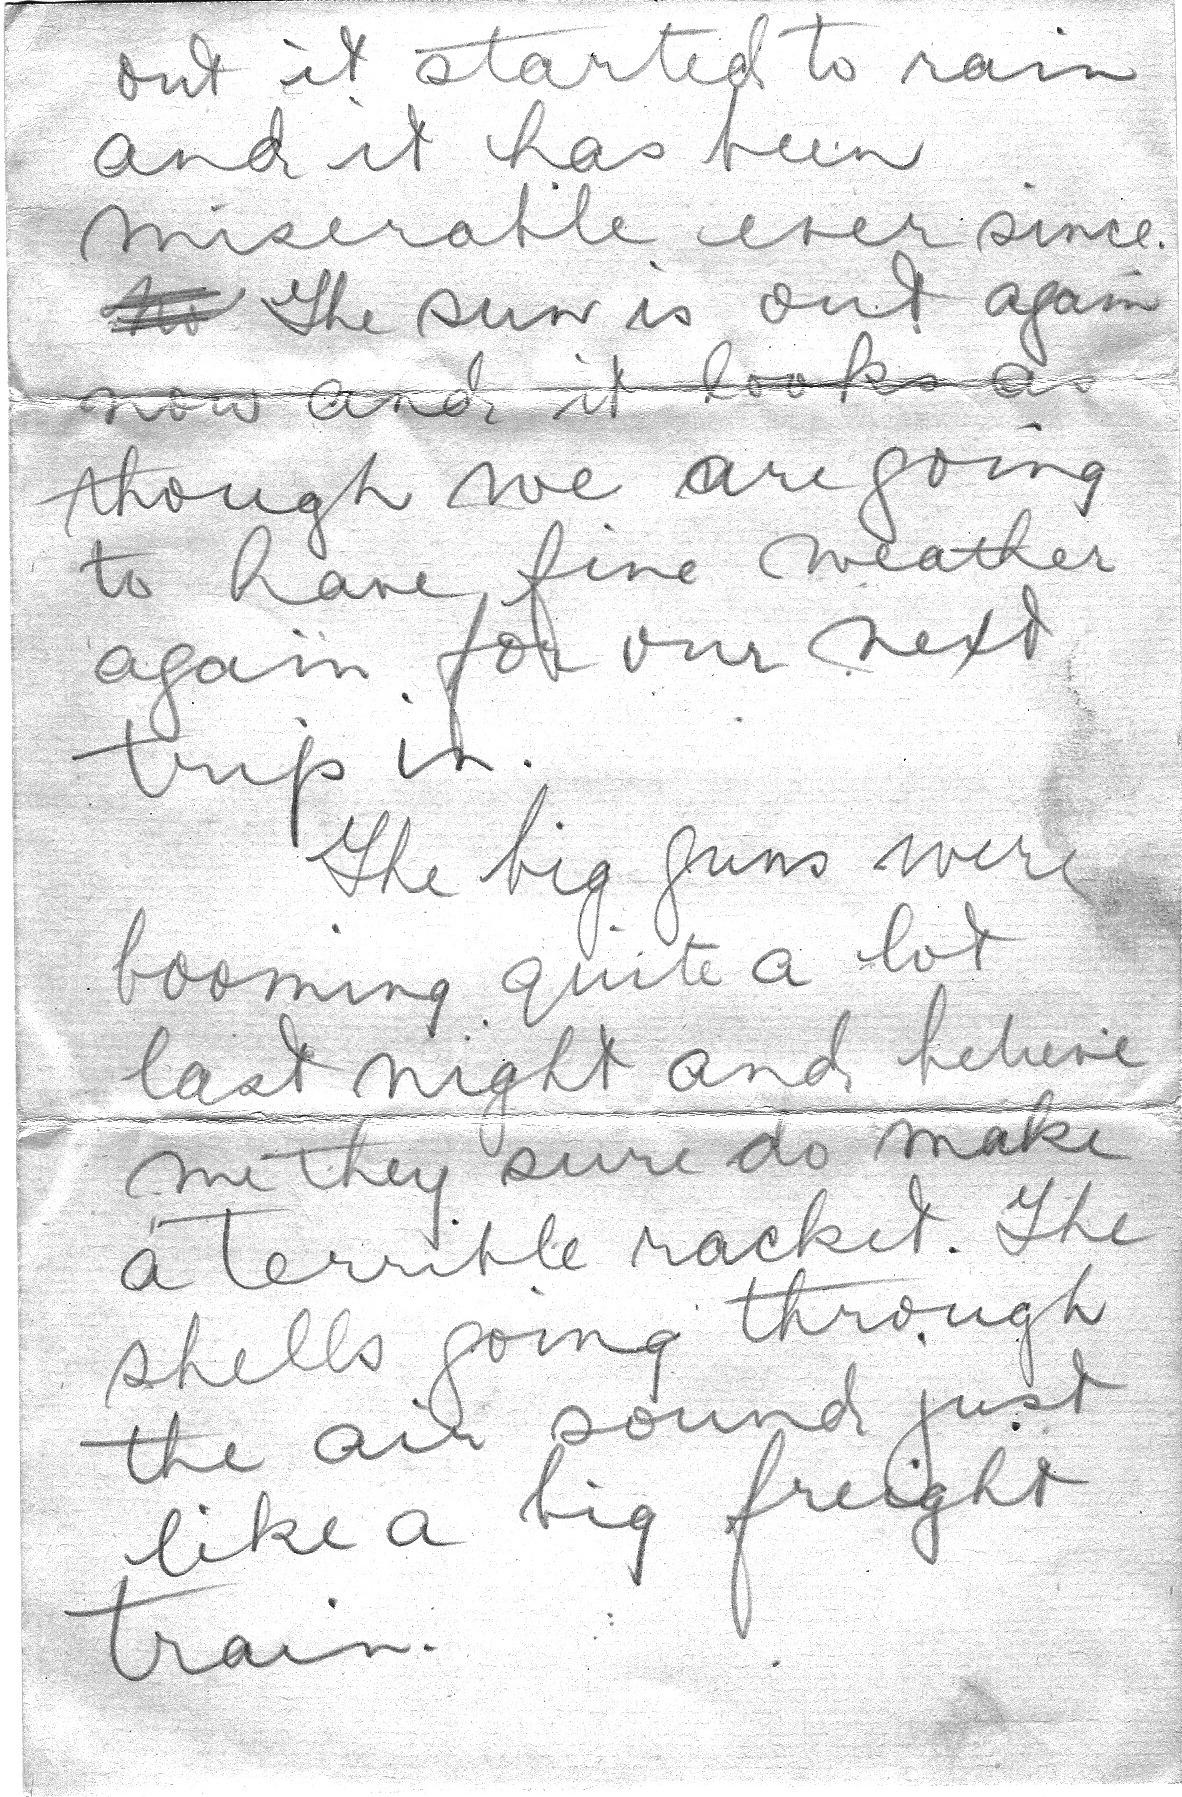 out it started to rain
and it has been
miserable ever since.
The sun is out again
now and it looks as
though we are going
to have fine weather
again for our next
trip in.
The big guns were
booming quite a lot
last night and believe
me they sure do make
a terrible racket. The
shells going through
the air sound just
like a big freight
train.